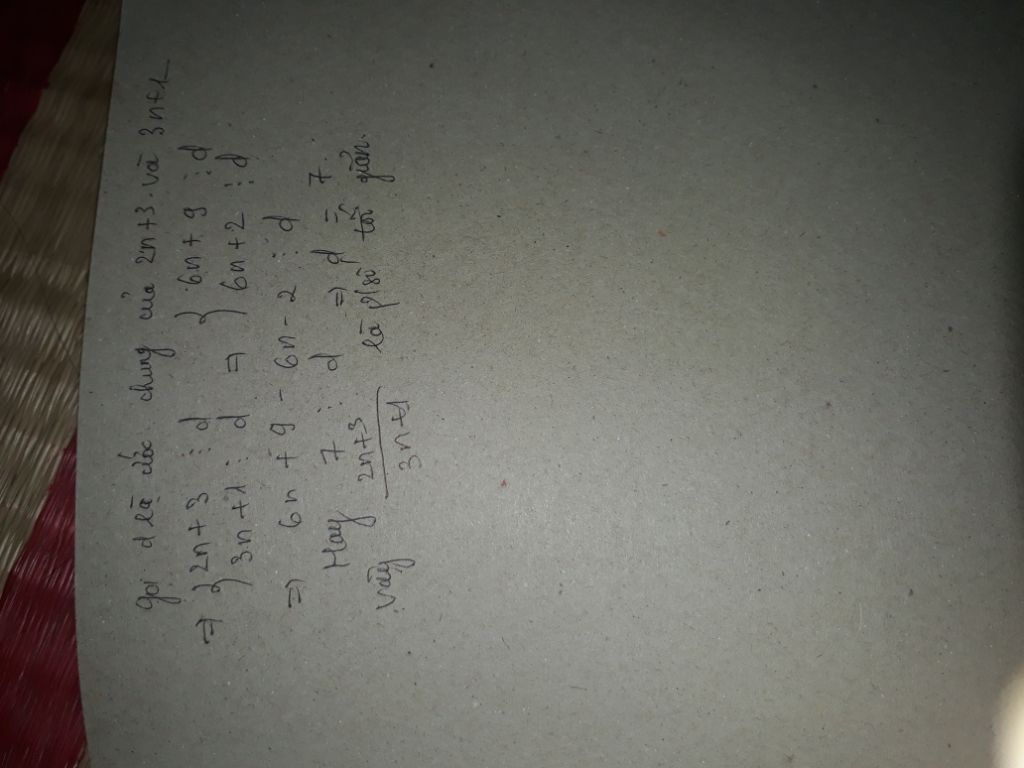 gọi d là ước chung của 2n+3 và 3n+1
=> } 2n+3 ⋮ d => } 6n+9 ⋮ d
3n+1 ⋮ d 6n+2 ⋮ d
=> 6n + 9 - 6n - 2 ⋮ d
Hay 7 ⋮ d => d = 7.
vậy 2n+3 là p/số tối giản.
3n+1